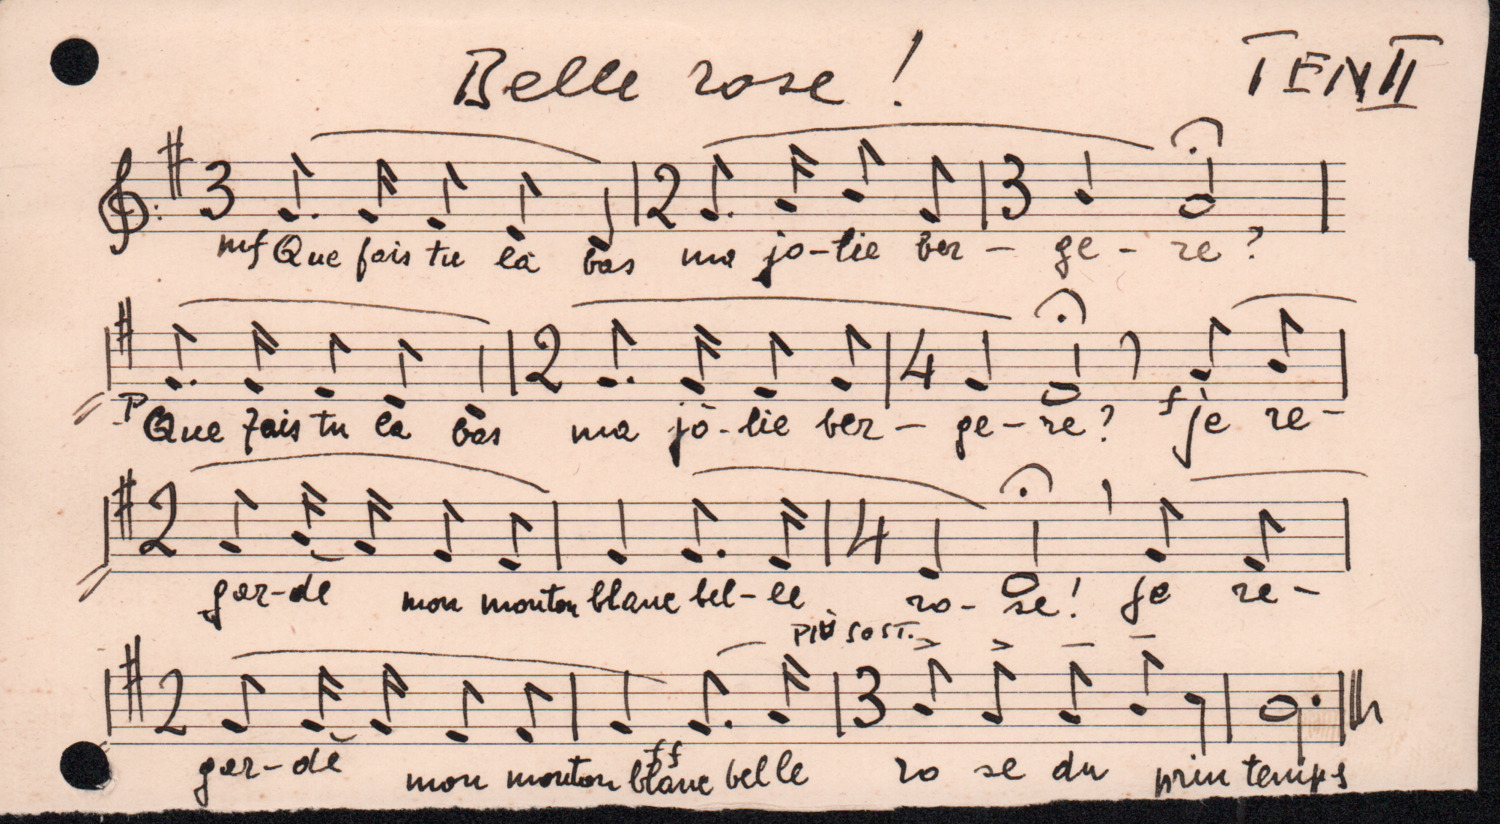 Belle rose !
TEN II
3 2 3
mf Que fais tu là bas ma jo-lie ber - ge - re ?
2 4
P Que fais tu la bas ma jo-lie ber - ge - re ? f je re-
2 4
gar-de mon mouton blanc bel-le ro- se! je re-
PIÙ SOST.
2 3
gar-de mon mouton ff blanc belle ro se du prin temps